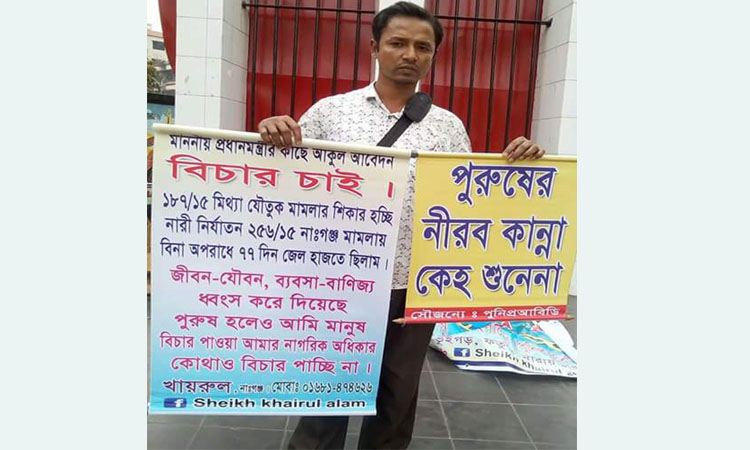 মাননীয় প্রধানমন্ত্রীর কাছে আকুল আবেদন
বিচার চাই ।
১৮৭/১৫ মিথ্যা যৌতুক মামলার শিকার হচ্ছি
নারী নির্যাতন ২৫৬/১৫ নাঃগঞ্জ মামলায়
বিনা অপরাধে ৭৭ দিন জেল হাজতে ছিলাম ।
জীবন-যৌবন, ব্যবসা-বাণিজ্য
ধ্বংস করে দিয়েছে
পুরুষ হলেও আমি মানুষ
বিচার পাওয়া আমার নাগরিক অধিকার
কোথাও বিচার পাচ্ছি না ।
খায়রুল, নাঃগঞ্জ । মোবাঃ ০১৬৮১-৪৭৪৬২৬
Sheikh khairul alam
পুরুষের
নীরব কান্না
কেহ শুনেনা
সৌজন্যে ঃ পুনিপ্রআবিডি
Sheikh khairul alam